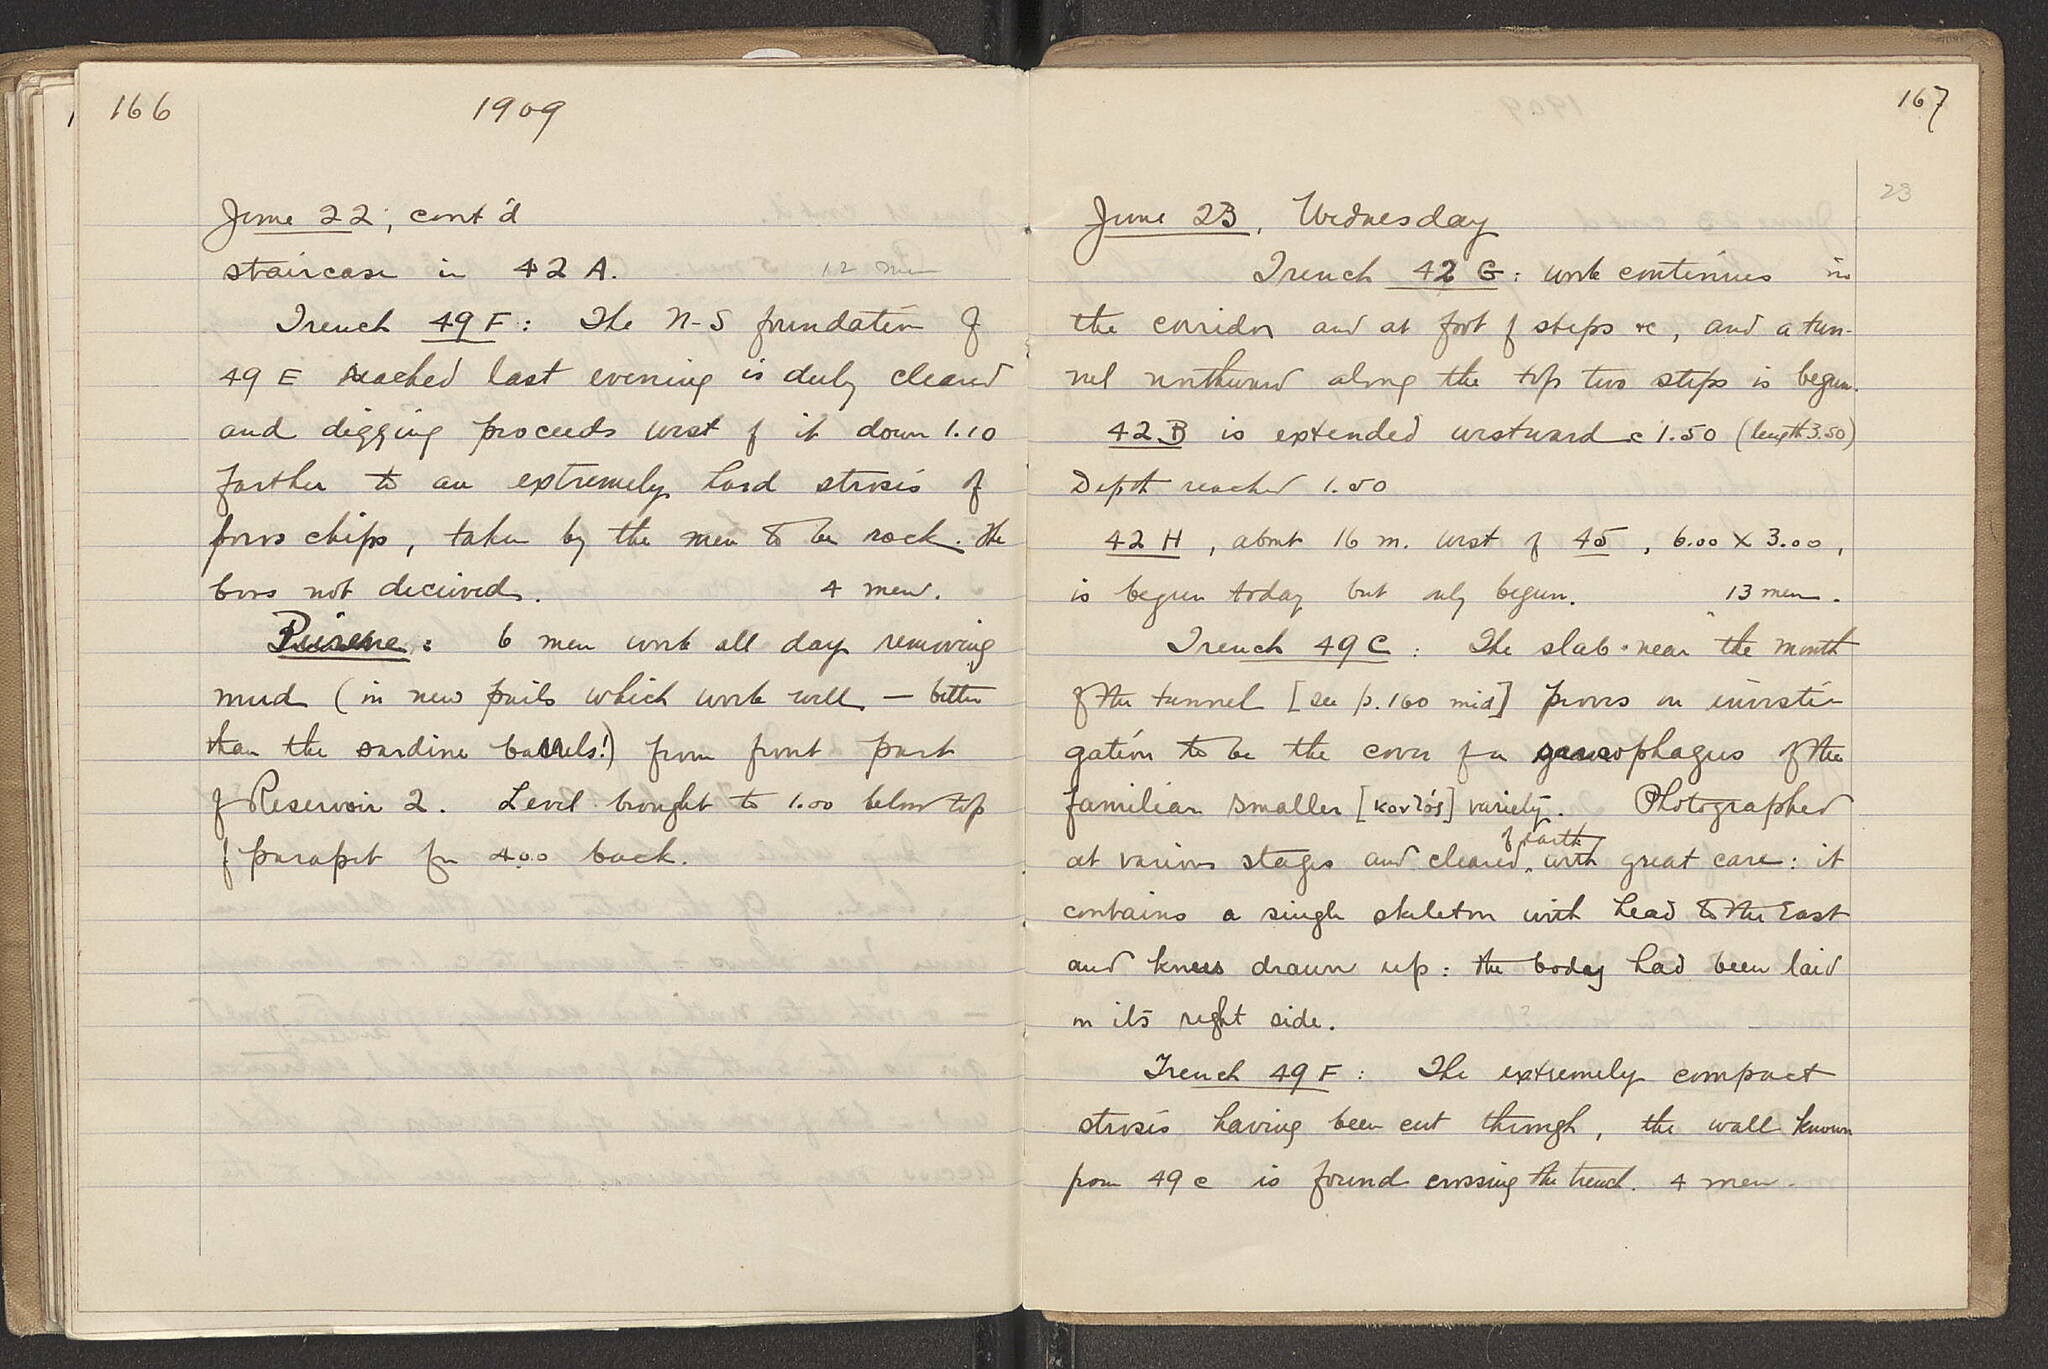 166
1909
June 22, cont'd
staircase in 42 A. 12 men
Trench 49 F: The N-S foundation of
49 E reached last evening is duly cleared
and digging proceeds west of it down 1.10
farther to an extremely hard strosis of
poros chips, taken by the men to be rock. The
boss not deceived. 4 men.
Peirene: 6 men work all day removing
mud (in new pails which work well – better
than the sardine barrels!) from front part
of Reservoir 2. Level brought to 1.00 below top
of parapet for 4.00 back.
167
23
June 23, Wednesday
Trench 42 G: work continues in
the corridor and at foot of steps &c, and a tun-
nel northward along the top two steps is begun.
42 B is extended westward c 1.50 (length 3.50)
Depth reached 1.50
42 H, about 16 m. west of 45, 6.00 X 3.00,
is begun today but only begun. 13 men.
Trench 49 C: The slab near the mouth
of the tunnel [see p. 160 mid] proves on investi-
gation to be the cover of a sarcophagus of the
familiar smaller [κουτός] variety. Photographed
of earth
at various stages and cleared with great care: it
contains a single skeleton with head to the East
and knees drawn up: the body had been laid
on its right side.
Trench 49 F: The extremely compact
strosis having been cut through, the wall known
from 49 C is found crossing the trench. 4 men.